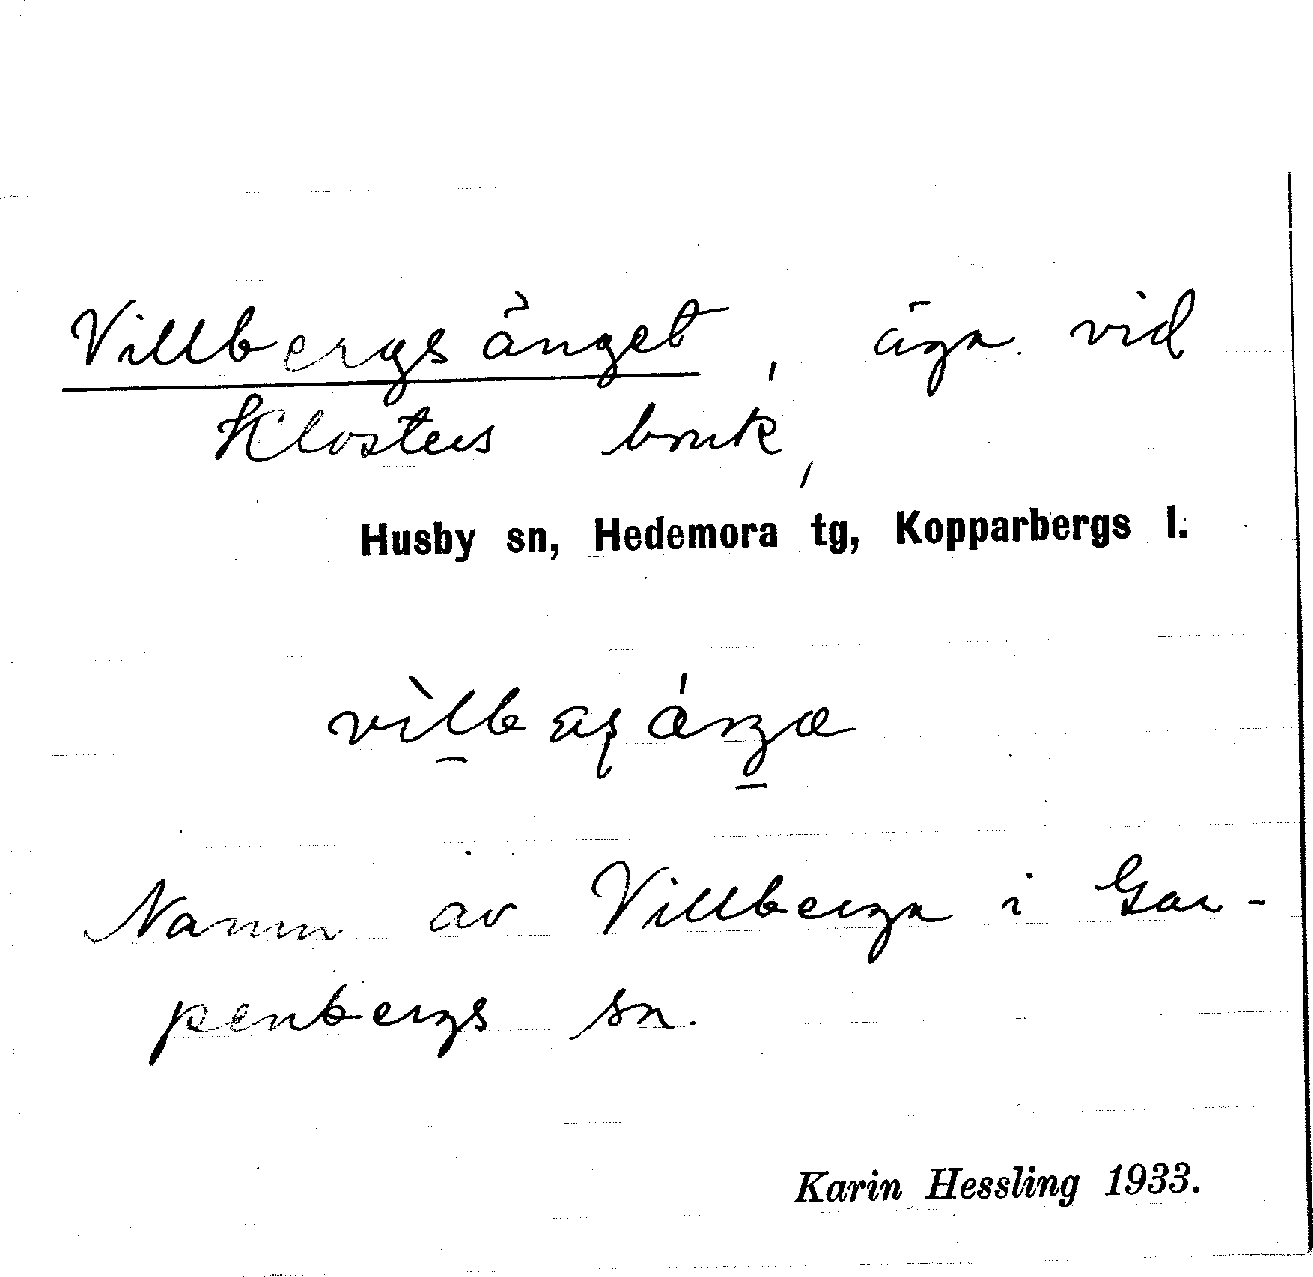 Villbergsänget, äga vid
Klosters bruk,
Husby sn, Hedemora tg, Kopparbergs l.
Namn av Villberga i Gar-
penbergs sn.
Karin Hessling 1933.